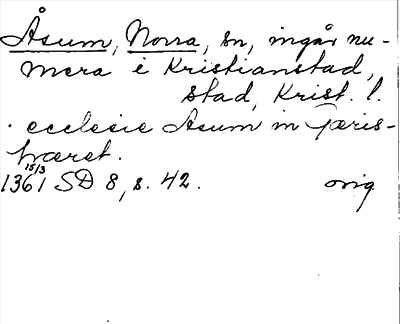 Åsum, Norra, sn, ingår nu-
mera i Kristianstad,
stad, Krist. l.
ecclesie Asum in Gæris-
hæret.
15/3
1361 SD 8, s. 42. orig